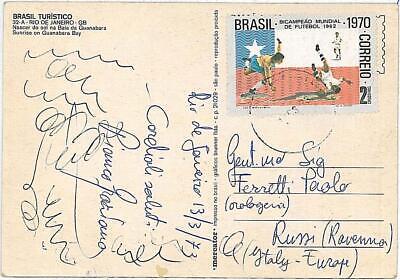 BRASIL TURÍSTICO
32-A - RIO DE JANEIRO - GB
Nascer do sol na Baía da Guanabara
Sunrise on Guanabara Bay
BRASIL
BICAMPEÃO MUNDIAL
DE FUTEBOL 1962
1970
CORREIO
2
Rio de Janeiro 13/3/73
Cordiali saluti
mercator - impresso no brasil - gráficos brunner ltda. - c. p. 21029 - são paulo - reprodução proibida
Gent.mo Sig
Ferretti Paolo
(orologeria)
Russi (Ravenna)
(Italy - Europe)